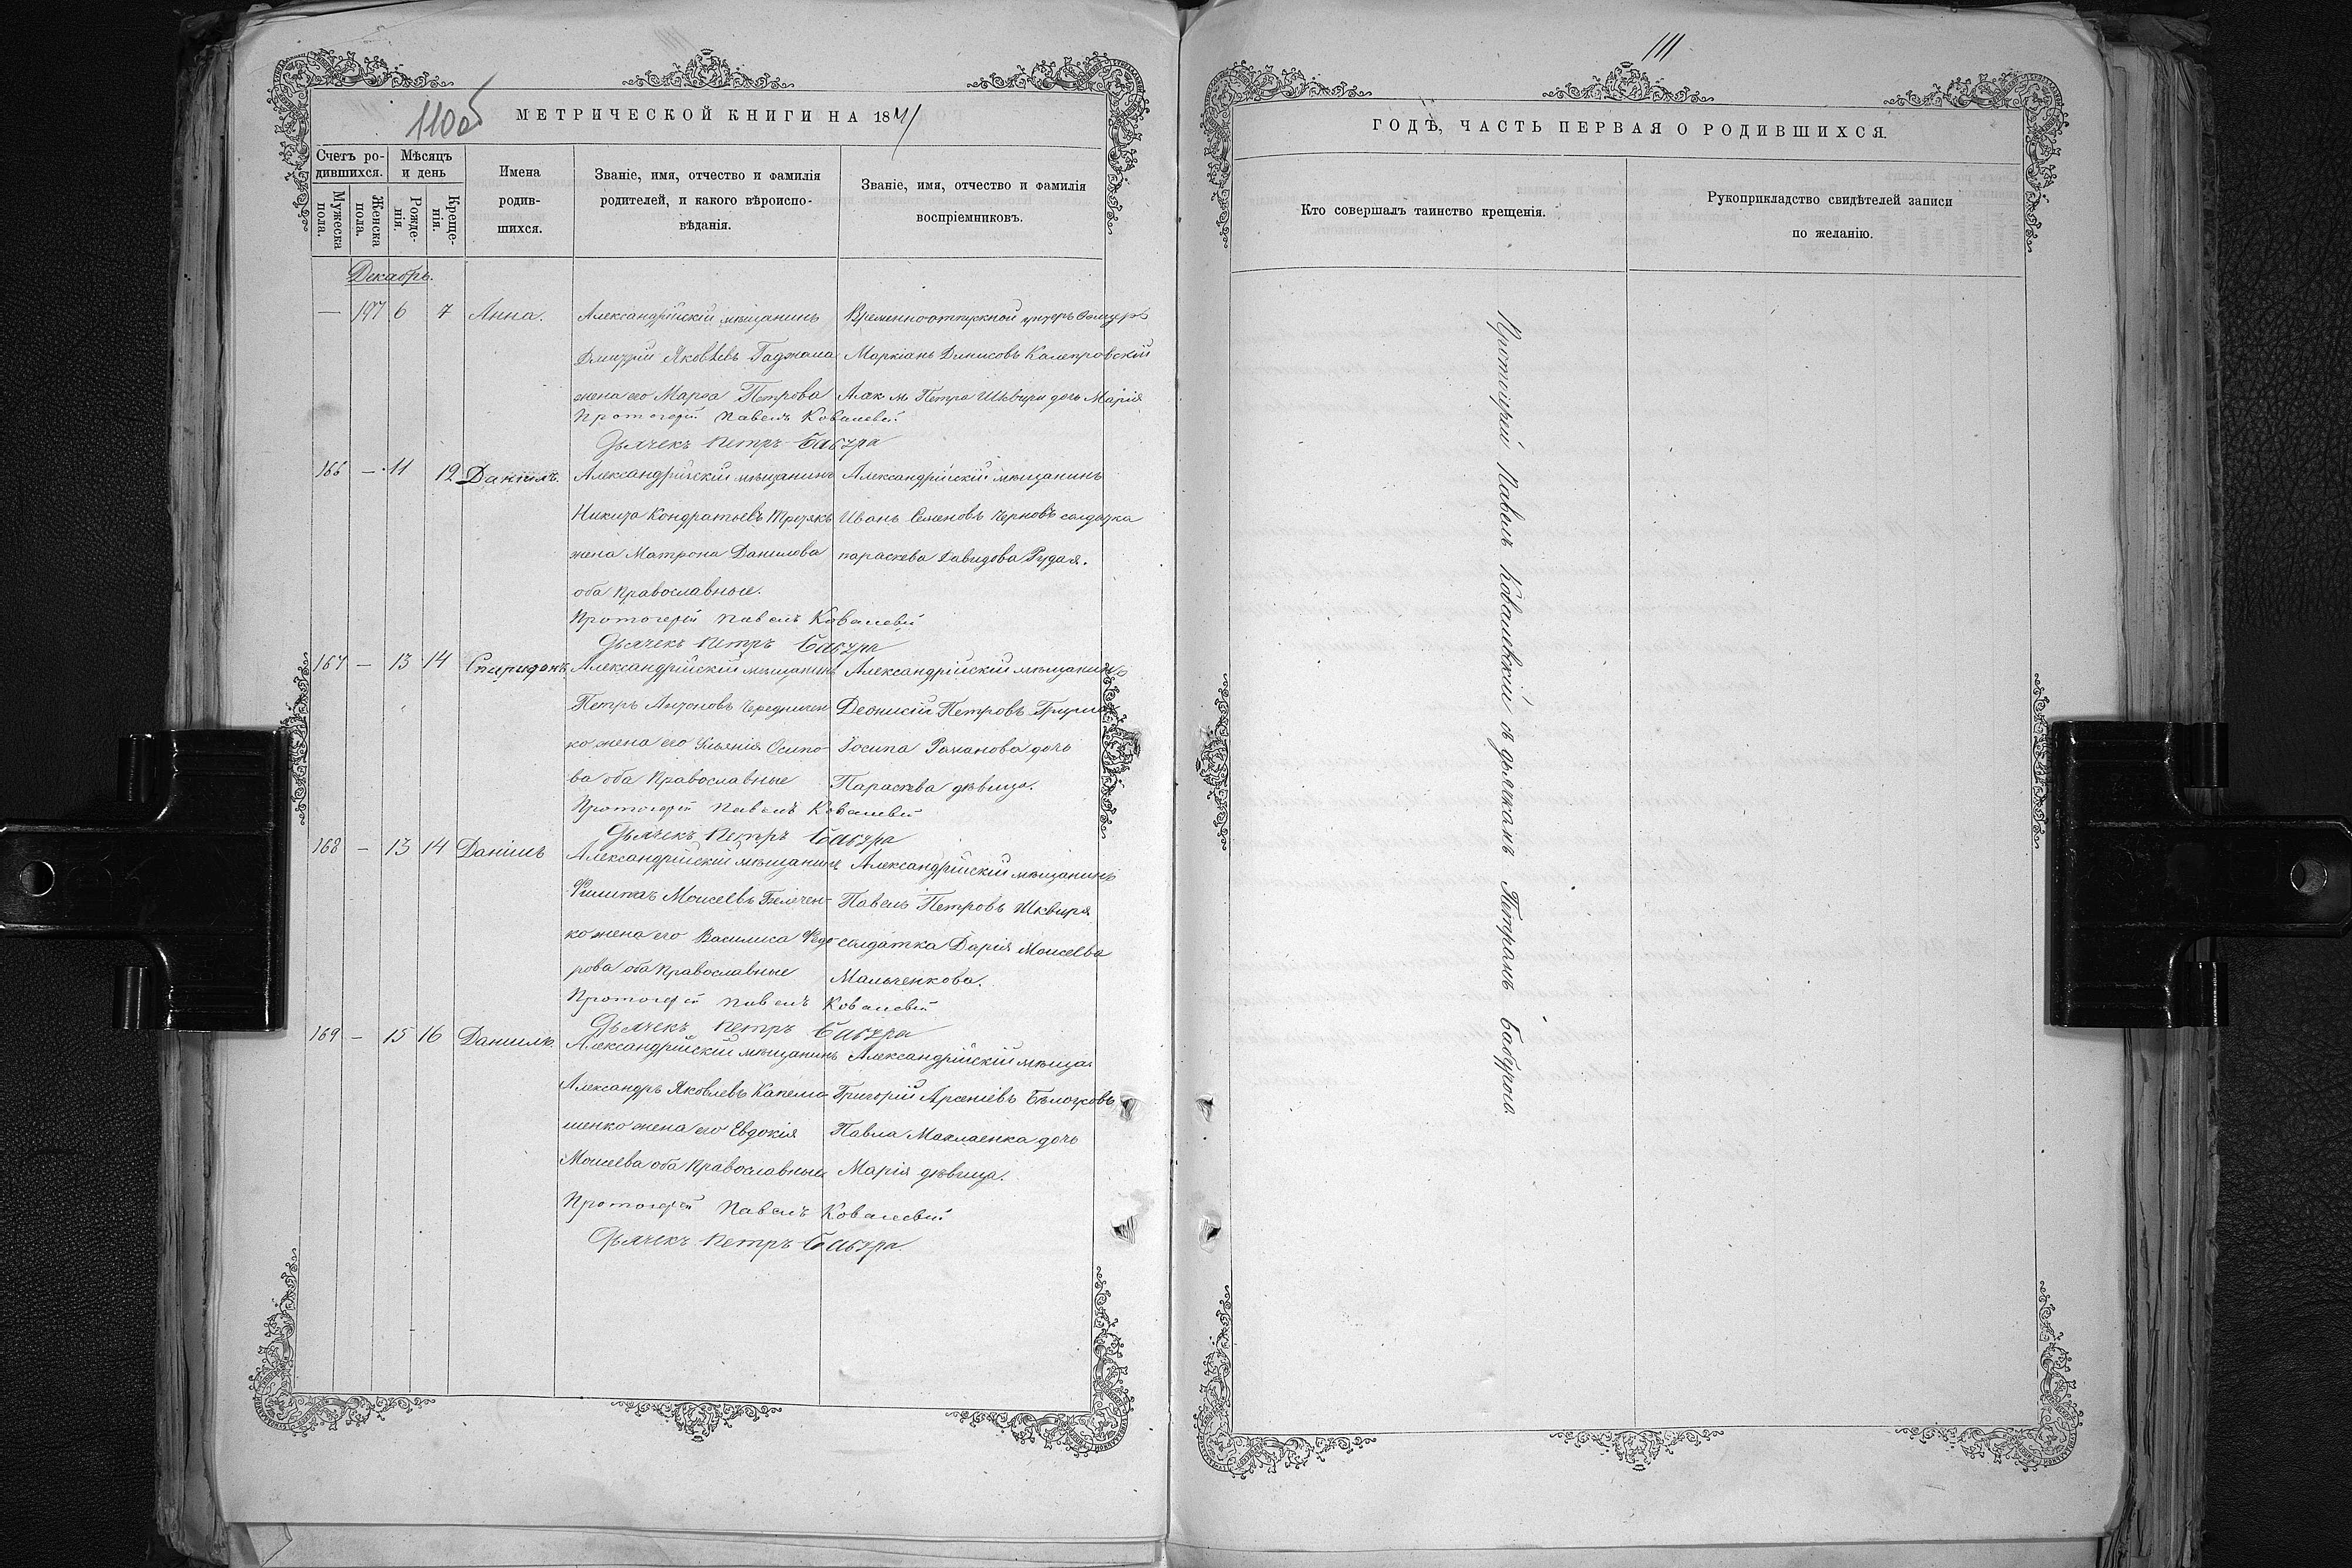 110об
МЕТРИЧЕСКОЙ КНИГИ НА 1871
Счетъ ро-
дившихся.
Мѣсяцъ
и день
Мужеска
пола.
Женска
пола.
Рожде-
нія.
Креще-
нія.
Имена
родив-
шихся.
Званіе, имя, отчество и фамилія
родителей, и какого вѣроиспо-
вѣданія.
Званіе, имя, отчество и фамилія
воспріемниковъ.
Декабрь.
— 147 6 7 Анна.
Александрійскій мѣщанинъ
Дмитрій Яковлевъ
жена его Марѳа Петрова
Временноотпускной унтеръ
Маркіанъ Динисовъ
Алек. м. Петра Шквири дочь Марія
Протоіерей Павелъ Ковалевскій
Дьячекъ Петръ Бабура
166 — 11 12 Даніилъ.
Александрійскій мѣщанинъ
Никита Кондратьевъ Третякъ
жена Матрона Данилова
оба Православные.
Александрійскій мѣщанинъ
Иванъ Семеновъ Черновъ солдатка
параскева Давидова Рудая.
Протоіерей Павелъ Ковалевскій
Дьячекъ Петръ Бабура
167 — 13 14 Спиридонъ
Александрійскій мѣщанинъ
Петръ Антоновъ Чередничен
ко жена его Ульянія Осипо
ва оба Православные
Александрійскій мѣщанинъ
Деонисій Петровъ
Іосипа Романова дочь
Параскева дѣвица.
Протоіерей Павелъ Ковалевскій
Дьячекъ Петръ Бабура
168 — 13 14 Даніилъ
Александрійскій мѣщанинъ
Филиппъ Моисеевъ
ко жена его Василиса Федо
рова оба Православные
Александрійскій мѣщанинъ
Павелъ Петровъ Шквиря
солдатка Дарія Моисеева
Мальченкова.
Протоіерей Павелъ Ковалевскій
Дьячекъ Петръ Бабура
169 — 15 16 Даніилъ.
Александрійскій мѣщанинъ
Александръ Яковлевъ Капелю
шенко жена его Евдокія
Моисеева оба Православные
Александрійскій мѣща
Григорій Арсеніевъ
Павла дочь
Марія дѣвица.
Протоіерей Павелъ Ковалевскій
Дьячекъ Петръ Бабура
111
ГОДЪ, ЧАСТЬ ПЕРВАЯ О РОДИВШИХСЯ.
Кто совершалъ таинство крещенія.
Рукоприкладство свидѣтелей записи
по желанію.
Протоіерей Павелъ Ковалевскій съ дьячкомъ Петромъ Бабурою.